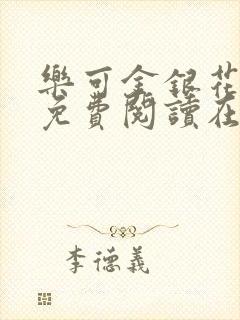 樂可金銀花
免費閱讀在
李德義